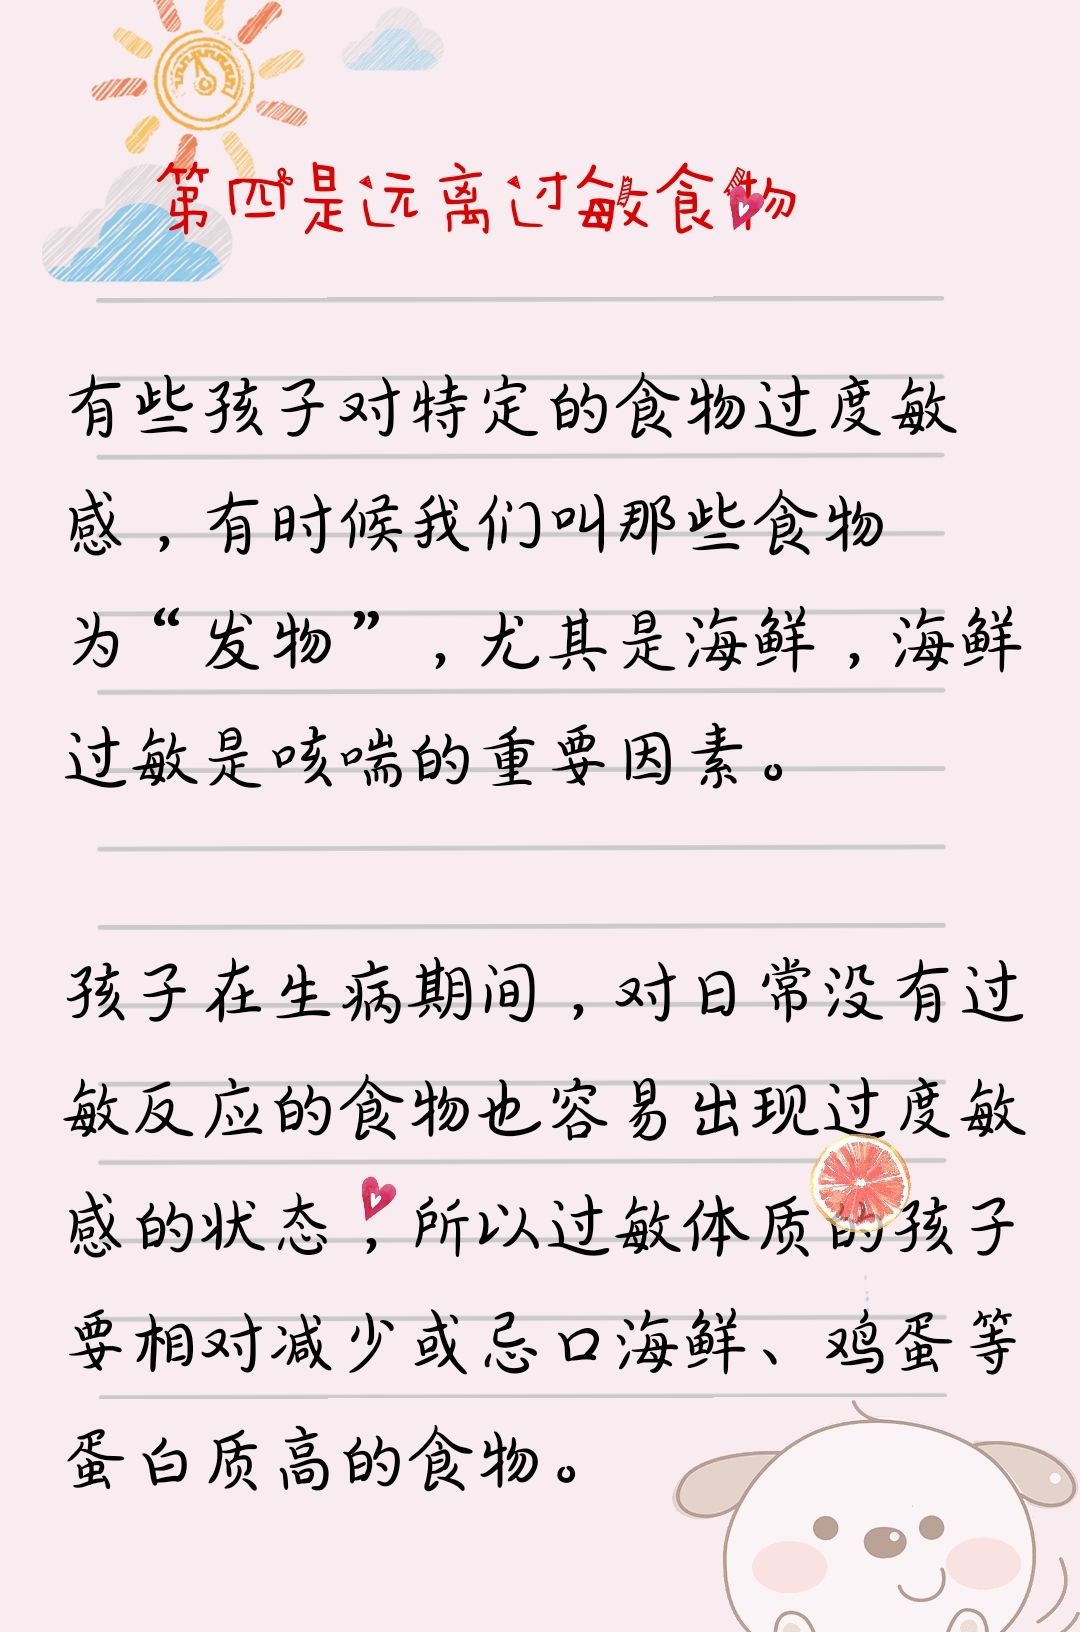 第四是远离过敏食物
有些孩子对特定的食物过度敏
感，有时候我们叫那些食物
为“发物”，尤其是海鲜，海鲜
过敏是咳喘的重要因素。
孩子在生病期间，对日常没有过
敏反应的食物也容易出现过度敏
感的状态，所以过敏体质的孩子
要相对减少或忌口海鲜、鸡蛋等
蛋白质高的食物。